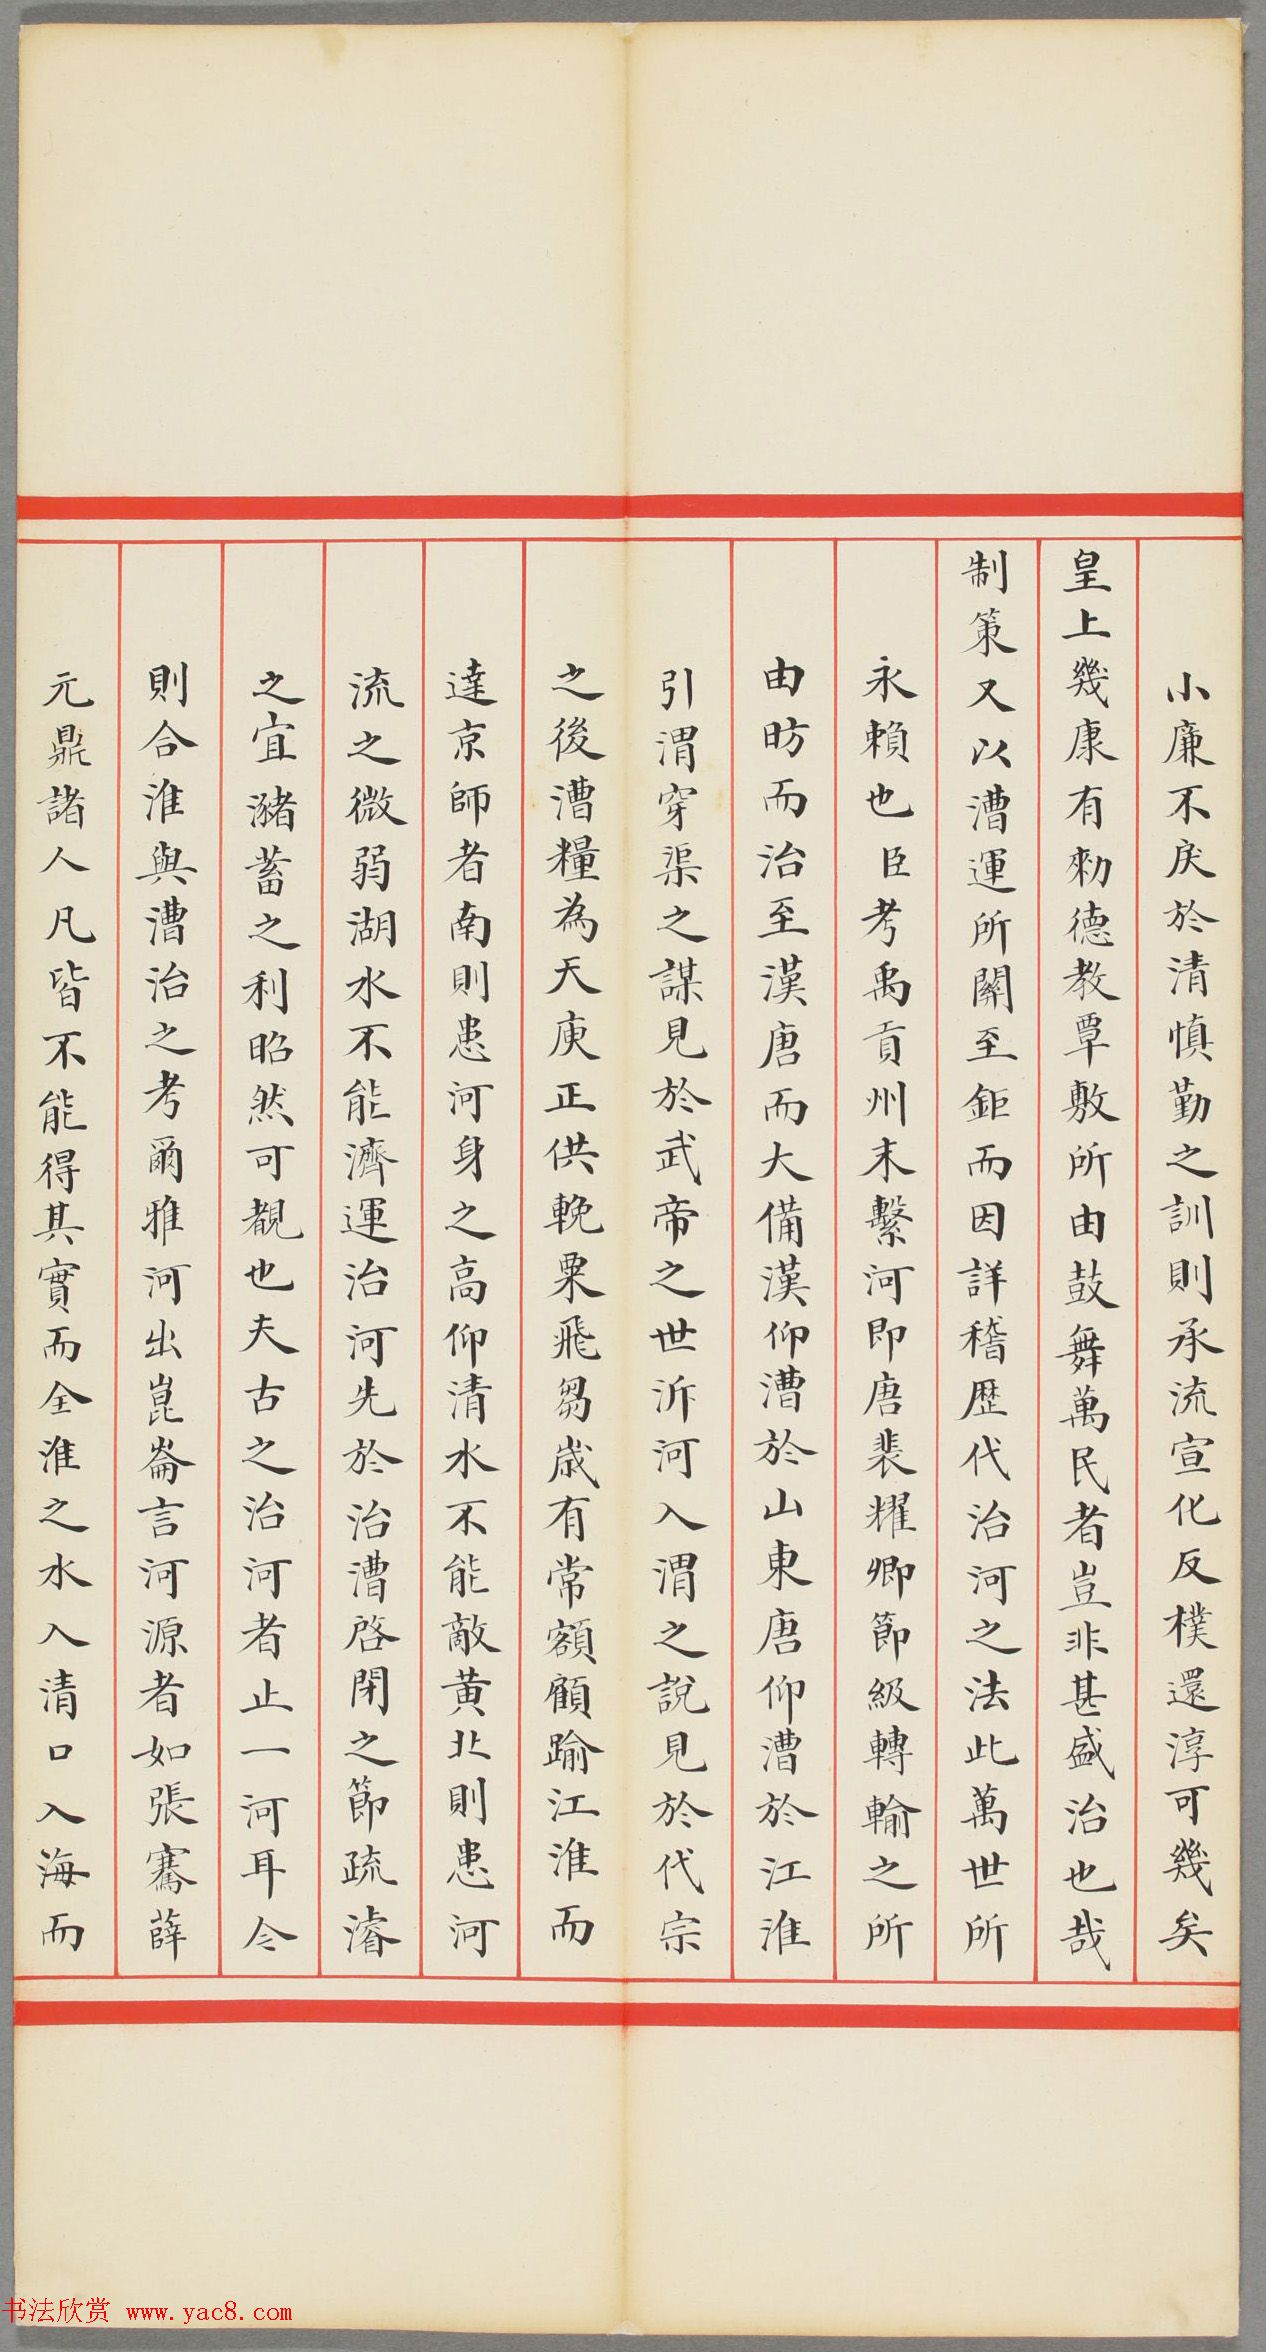 小廉不戾於清慎勤之訓則承流宣化反樸還淳可幾矣
皇上幾康有勑德教覃敷所由鼓舞萬民者豈非甚盛治也哉
制策又以漕運所關至鉅而因詳稽歷代治河之法此萬世所
永賴也臣考禹貢州末繫河即唐裴耀卿節級轉輸之所
由昉而治至漢唐而大備漢仰漕於山東唐仰漕於江淮
引渭穿渠之謀見於武帝之世泝河入渭之說見於代宗
之後漕糧為天庾正供輓粟飛芻歲有常額顧踰江淮而
達京師者南則患河身之高仰清水不能敵黃北則患河
流之微弱湖水不能濟運治河先於治漕啓閉之節疏濬
之宜瀦蓄之利昭然可覩也夫古之治河者止一河耳今
則合淮與漕治之考爾雅河出崑崙言河源者如張騫薛
元鼎諸人凡皆不能得其實而全淮之水入清口入海而
书法欣赏 www.yac8.com